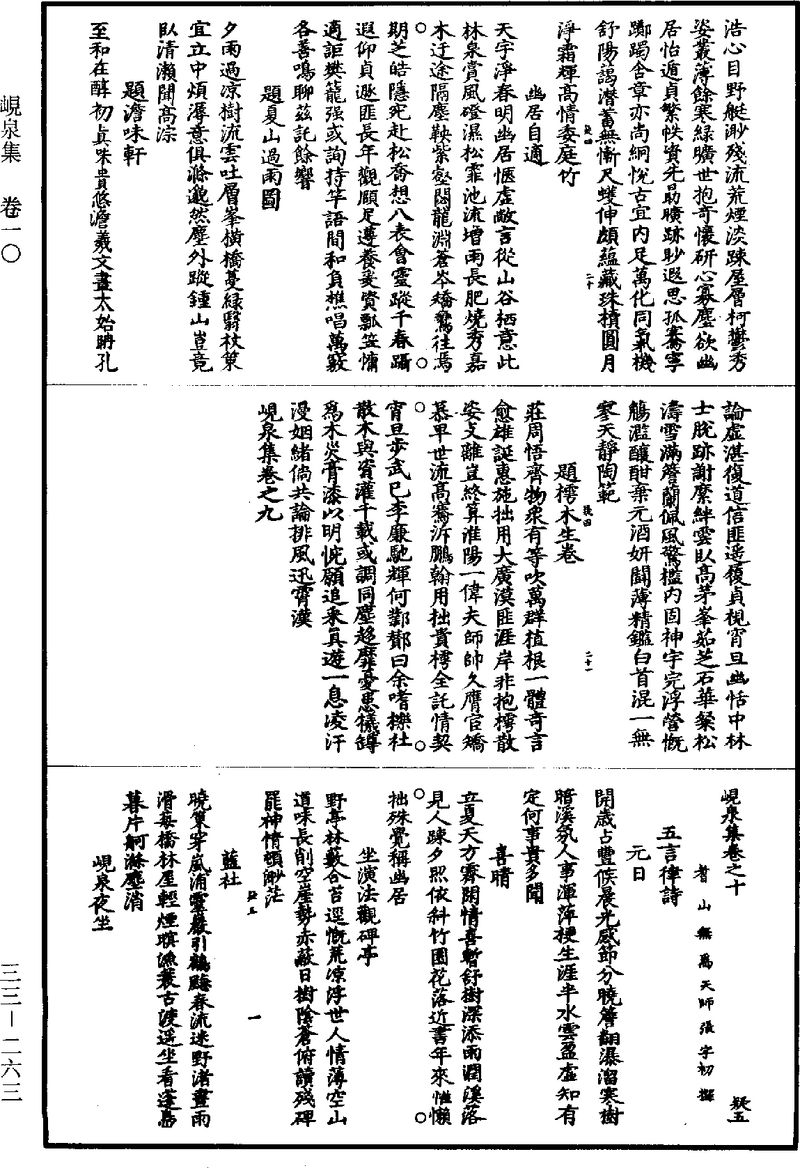 浩心目野艇渺殘流荒煙淡疎屋層柯鬱秀
姿叢薄餘寒綠曠世抱奇懷研心寡塵欲幽
居怡遁貞繁帙資先勗曠跡眇遐思孤騫寧
躑躅含章亦尚絅悅古宜内足萬化同氣機
舒陽藹潛蓄無慚尺蠖伸頗蘊藏珠櫝圓月
淨霜輝高情委庭竹
幽居自適
天宇淨春明幽居愜虛敞言從山谷栖意此
林泉賞風磴濕松霏池流增雨長肥燒秀嘉
木迂途隔塵鞅紫壑閟龍淵蒼岑矯鶩往焉
期芝皓隱宛赴松喬想八表會靈蹤千春躡
遐仰貞遯匪長年觀頤足遵養爰資瓢笠慵
適詎樊籠强或詢持竿語間和負樵唱萬竅
各善鳴聊茲託餘響
題夏山過雨圖
夕雨過涼樹流雲吐層峯橫橋蔓綠翳杖策
宜立中煩溽意俱滌邈然塵外蹤鍾山豈竟
臥清瀨聞高淙
題澹味軒
至和在醇初眞味貴悠澹羲文畫太始聃孔
論虛湛復道信匪遥履貞視宵旦幽恬中林
士脫跡謝縻絆雲臥高茅峯茹芝石華粲松
濤雪滿簷蘭佩風驚檻内固神宇完浮營慨
觴濫釀酣棄元酒妍鬪薄精鑑白首混一無
寥天靜陶範
題樗木生卷
莊周悟齊物衆有等吹萬群植根一體奇言
愈雄誕惠施拙用大廣漠匪涯岸非抱樗散
姿支離豈終算淮陽一偉夫師帥久膺官矯
慕畢世流高騫泝鵬翰用拙貴樗全託情契
宵旦步武巳李廉馳輝何鄭鄭曰余嗜櫟社
散木與資灌千載或調同塵趍靡憂患犧罇
爲木災膏漆以明惋願追乘眞遊一息凌汗
漫姻緒倘共論排風迅霄漢
峴泉集卷之九
峴泉集卷之十
耆山無爲天師張宇初撰
五言律詩
元日
開歲占豐候晨光感節分曉簷翻瀑溜寒樹
暗溪氛人事渾萍梗生涯半水雲盈虛知有
定何事貴多聞
喜晴
立夏天方霽閑情喜暫舒樹深添雨潤溪落
見人疎夕照依斜竹園花落近書年來惟懶
拙殊覺稱幽居
坐演法觀碑亭
野亭林藪合苔逕慨荒凉浮世人情薄空山
道味長削空崖勢赤蔽日樹陰蒼俯讀殘碑
罷神情頓渺茫
藍社
曉策穿嵐涌靈巖引鶴騎春流迷野渚晝雨
滑莓橋林屋輕煙暝漁蓑古渡遥坐看蓬島
暮片舸滌塵消
峴泉夜坐
峴泉集 卷一〇
三三－二六三